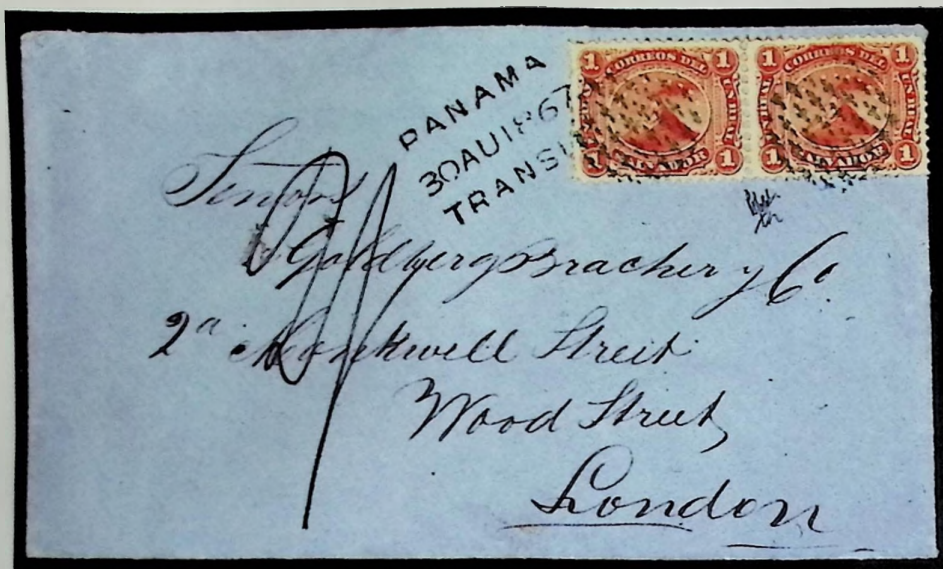 PANAMA
30AU1867
TRANSI
1 CORREOS DEL 1
UN REAL UN REAL
1 SALVADOR 1
1 CORREOS DEL 1
UN REAL UN REAL
1 SALVADOR 1
Goldberg Bracher y Co
2a Monkwell Street
Wood Street
London